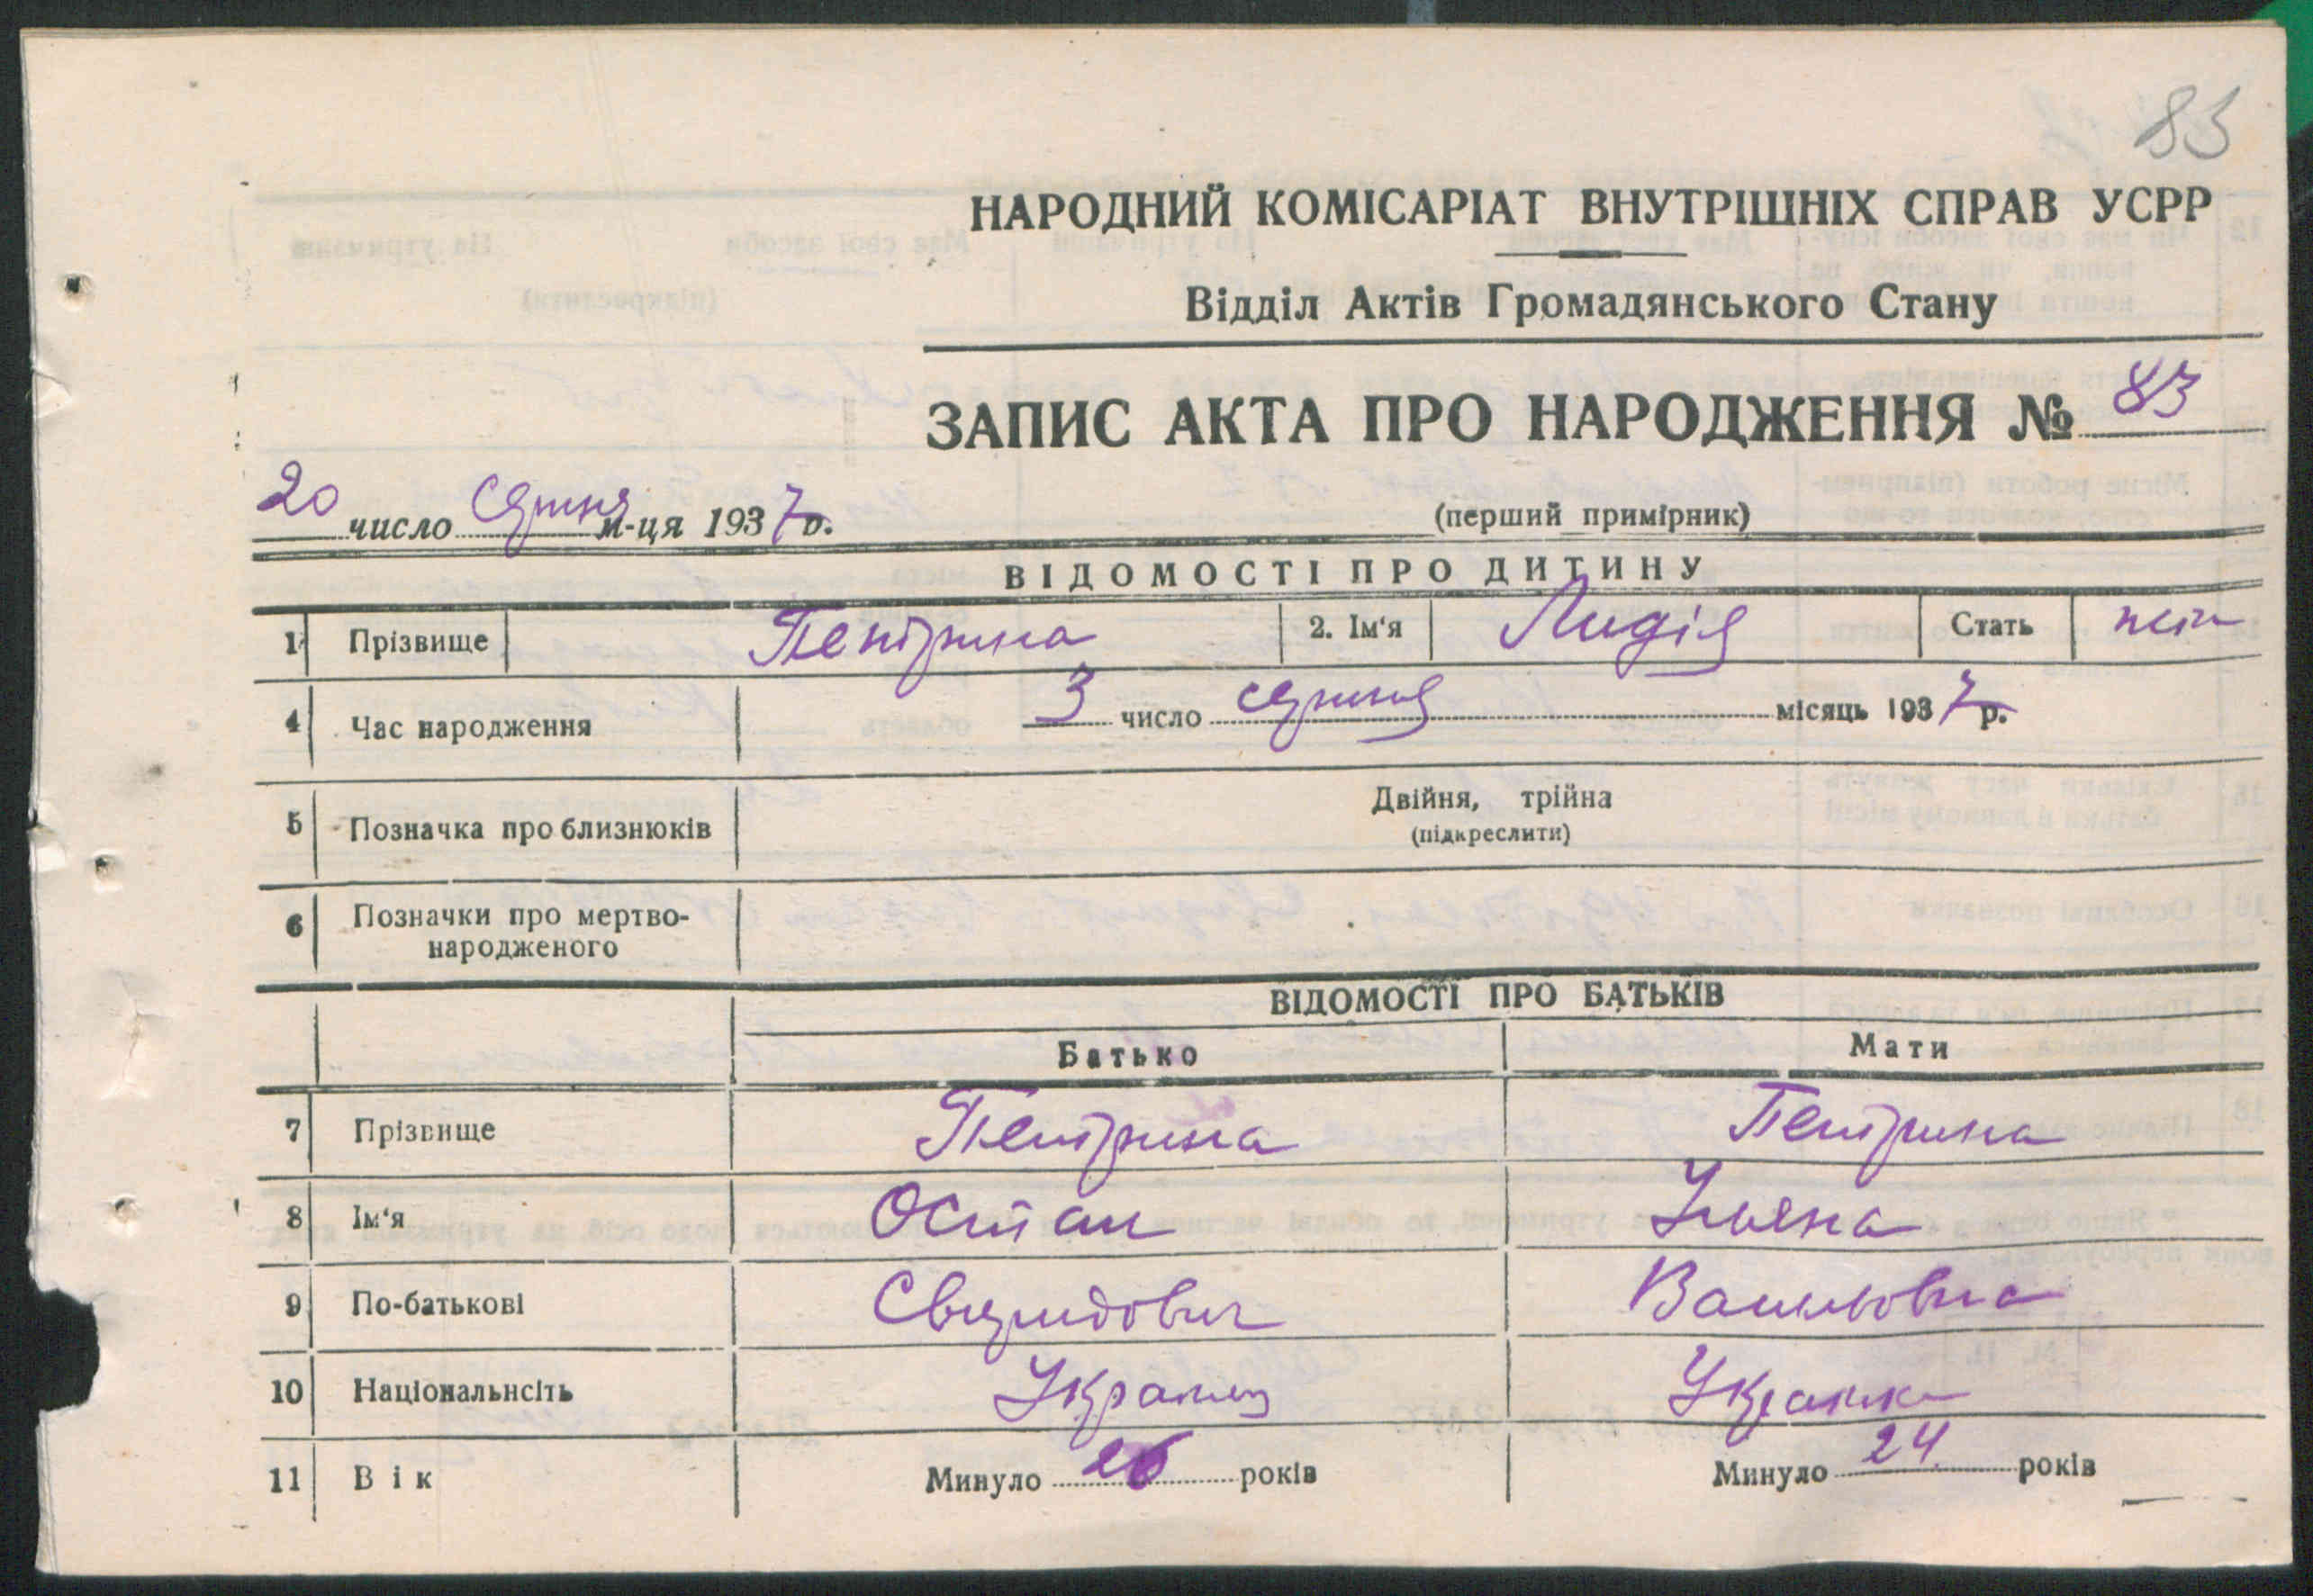 83
НАРОДНИЙ КОМІСАРІАТ ВНУТРІШНІХ СПРАВ УСРР
Відділ Актів Громадянського Стану
ЗАПИС АКТА ПРО НАРОДЖЕННЯ № 83
20 число Серпня м-ця 1937 р.
(перший примірник)
ВІДОМОСТІ ПРО ДИТИНУ
1 Прізвище Петрина 2. Ім'я Лидія Стать жін
4 Час народження 3 число серпня місяць 1937 р.
5 Позначка про близнюків Двійня, трійна
(підкреслити)
6 Позначки про мертво-
народженого
ВІДОМОСТІ ПРО БАТЬКІВ
Батько Мати
7 Прізвище Петрина Петрина
8 Ім'я Остап Уляна
9 По-батькові Свиридович
10 Національнсіть Українец Українка
11 Вік Минуло 26 років Минуло 24 років